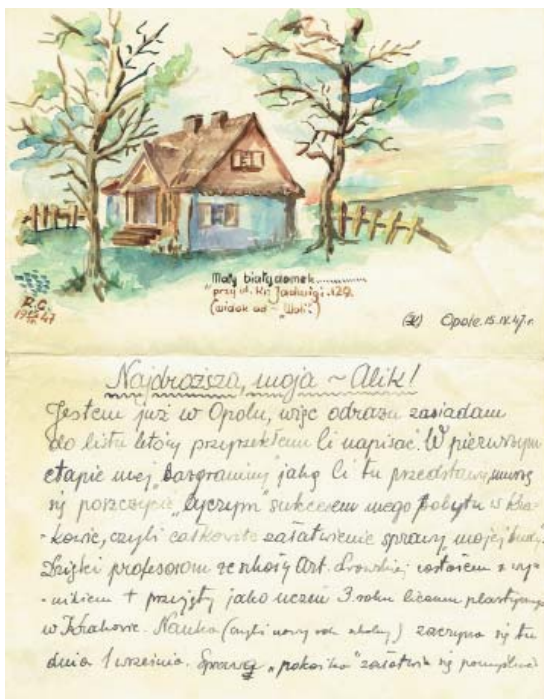 Mały biały domek..........
"przy ul. Kr. Jadwigi. 129.
(widok od - "Woli")
R.C.
19 47
Opole. 15.IV.47.r.
Najdroższa, moja ~ Alik!
Jestem już w Opolu, więc odrazu zasiadam
do listu który przyrzekłem Ci napisać. W pierwszym
etapie mej bazgraniny jaką Ci tu przedstawię, muszę
się poszczycić sukcesem mego pobytu w Kra-
-kowie, czyli całkowite załatwienie sprawy "mojej budy".
Dzięki profesorom ze szkoły Art. Lwowskiej zostałem z wy-
-nikiem + przyjęty jako uczeń 3. roku liceum plastycznego
w Krakowie. Nauka (czyli nowy rok szkolny) zaczyna się tu
dnia 1 września. Sprawę "pokoiku" załatwia się pomyślnie